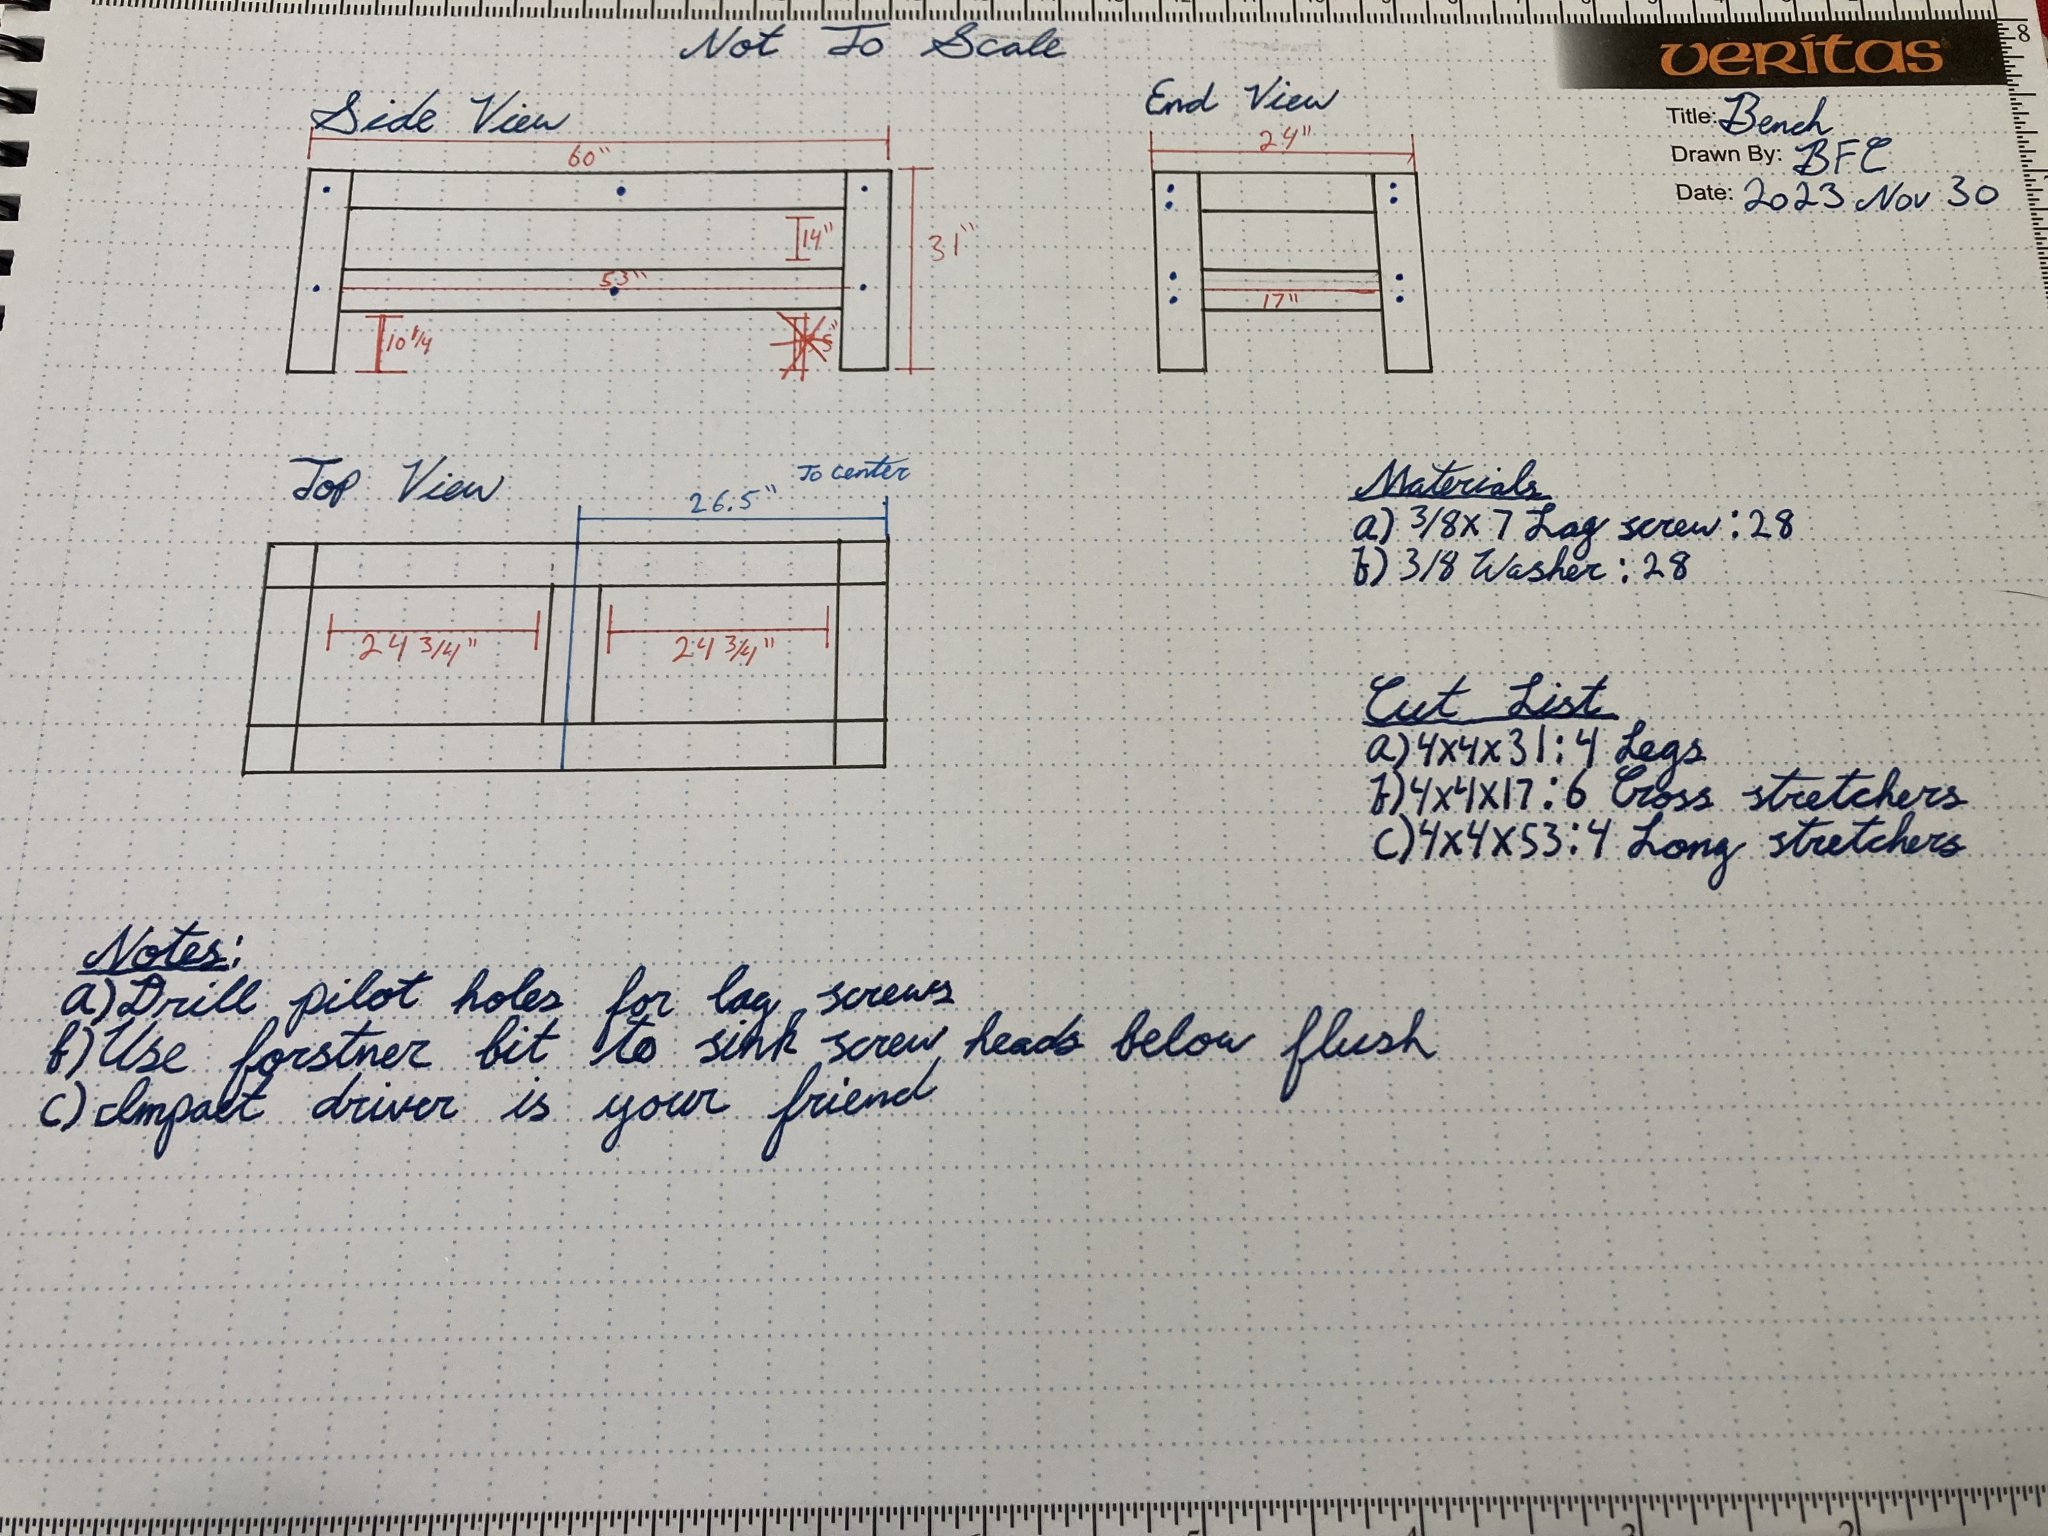 Not To Scale
veritas
Title: Bench
Drawn By: BFC
Date: 2023 Nov 30
Side View
60"
14"
31"
53"
10 1/4
5"
End View
24"
17"
Top View
To center
26.5"
24 3/4"
24 3/4"
Materials
a) 3/8x7 Lag screw: 28
b) 3/8 Washer: 28
Cut List
a) 4x4x31: 4 Legs
b) 4x4x17: 6 Cross stretchers
c) 4x4x53: 4 Long stretchers
Notes:
a) Drill pilot holes for lag screws
b) Use forstner bit to sink screw heads below flush
c) Impact driver is your friend